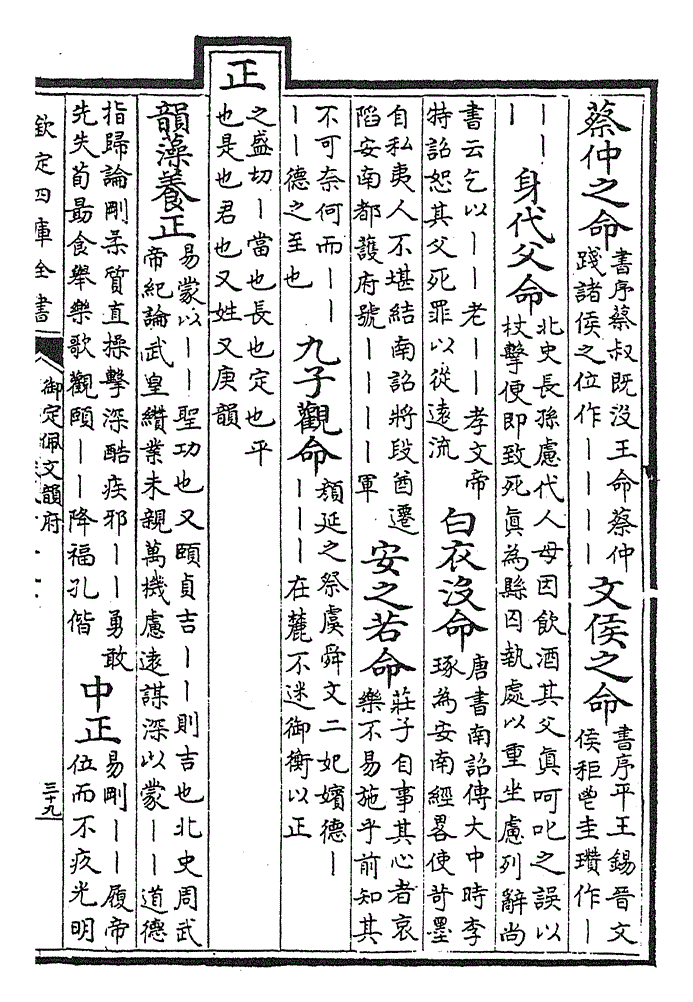 蔡仲之命
書序蔡叔既沒王命蔡仲
踐諸侯之位作丨丨丨丨
文侯之命
書序平王錫晉文
侯秬鬯圭瓚作丨
丨丨
丨
身代父命
北史長孫慮代人母因飲酒其父真呵叱之誤以
杖擊便即致死真為縣囚執處以重坐慮列辭尚
書云乞以丨丨老丨丨孝文帝
特詔恕其父死罪以從遠流
白衣沒命
唐書南詔傳大中時李
琢為安南經畧使苛墨
自私夷人不堪結南詔將段酋遷
陷安南都護府號丨丨丨丨軍
安之若命
莊子自事其心者哀
樂不易施乎前知其
不可奈何而丨丨
丨丨德之至也
九子觀命
顏延之祭虞舜文二妃嬪德丨
丨丨丨在麓不迷御衡以正
正
之盛切丨當也長也定也平
也是也君也又姓又庚韻
韻藻養正
易蒙以丨丨聖功也又頤貞吉丨丨則吉也北史周武
帝紀論武皇纘業未親萬機慮遠謀深以蒙丨丨道德
指歸論剛柔質直操擊深酷疾邪丨丨勇敢
先失荀勗食舉樂歌觀頤丨丨降福孔偕
中正
易剛丨丨履帝
位而不疚光明
欽定四庫全書
御定佩文韻府
三十九